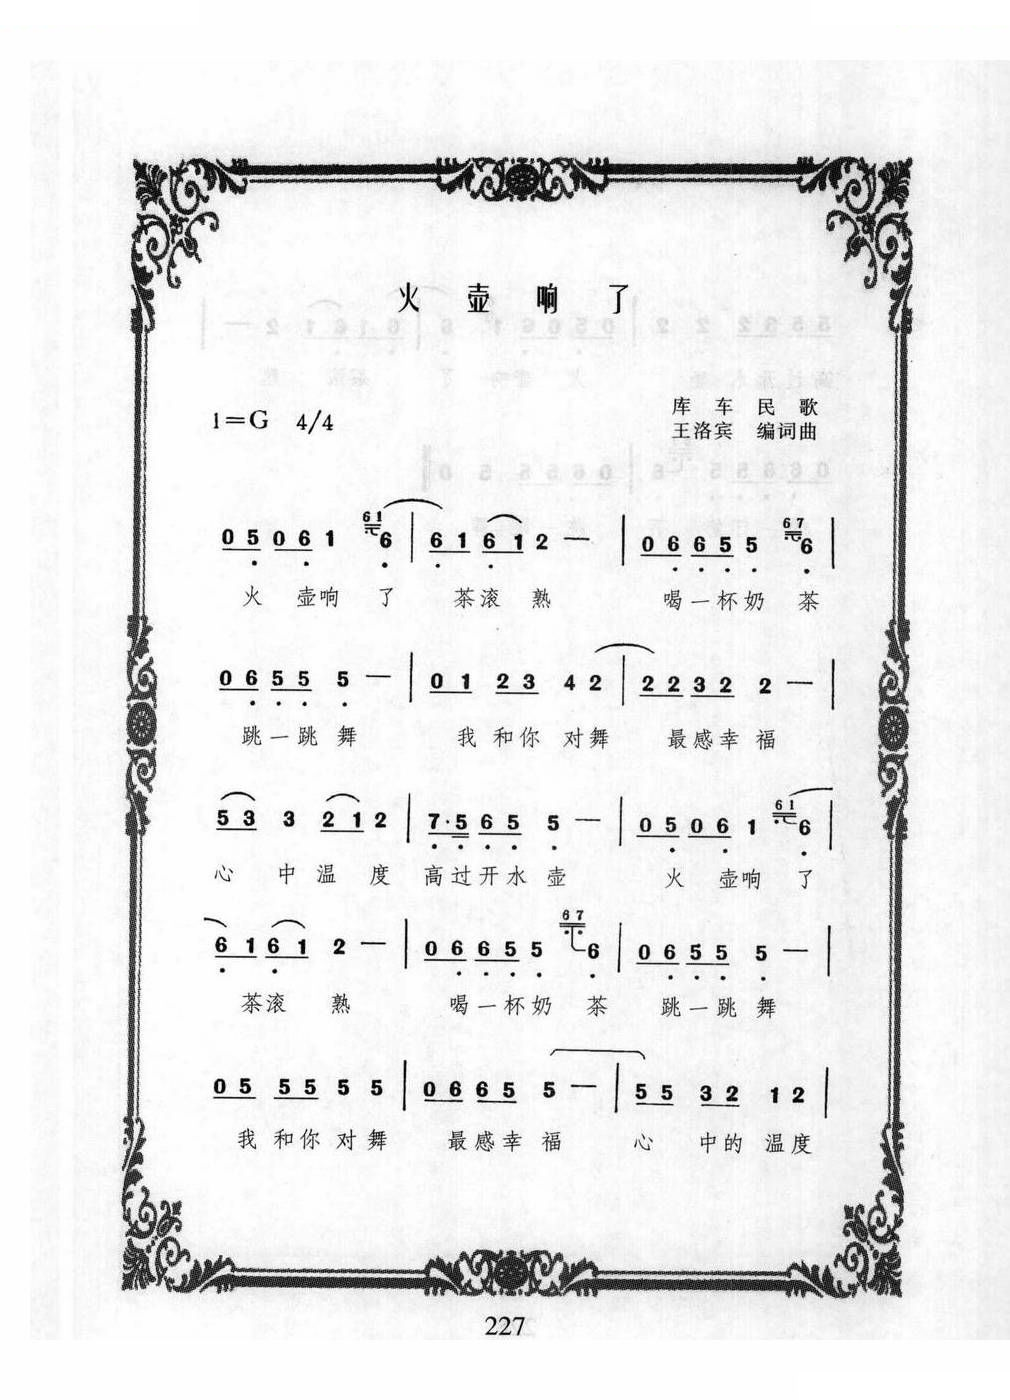 火壶响了
1=G 4/4
库车民歌
王洛宾 编词曲
0 5 0 6 1 61 6 | 6 1 6 1 2 — | 0 6 6 5 5 5 67 6 |
火 壶响 了 茶滚 熟 喝一杯奶 茶
0 6 5 5 5 — | 0 1 2 3 4 2 | 2 2 3 2 2 — |
跳一跳 舞 我 和你 对舞 最感幸 福
5 3 3 2 1 2 | 7·5 6 5 5 — | 0 5 0 6 1 61 6 |
心 中 温 度 高过开水 壶 火 壶响 了
6 1 6 1 2 — | 0 6 6 5 5 5 67 6 | 0 6 5 5 5 — |
茶滚 熟 喝一杯奶 茶 跳一跳 舞
0 5 5 5 5 5 | 0 6 6 5 5 — | 5 5 3 2 1 2 |
我 和你 对舞 最感幸 福 心 中的 温度
227